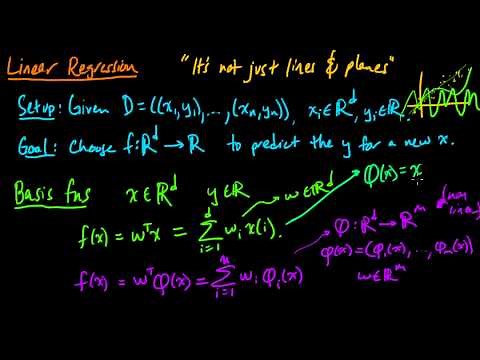 Linear Regression "It's not just lines & planes"
Setup: Given D = ((x₁, y₁), ..., (xₙ, yₙ)), xᵢ ∈ ℝᵈ, yᵢ ∈ ℝ.
Goal: Choose f: ℝᵈ → ℝ to predict the y for a new x.
Basis fns x ∈ ℝᵈ y ∈ ℝ w ∈ ℝᵈ φ(x) = x
f(x) = wᵀx = Σᵢ₌₁ᵈ wᵢ x(i). φ: ℝᵈ → ℝᵐ
φ(x) = (φ₁(x), ..., φₘ(x))
f(x) = wᵀφ(x) = Σᵢ₌₁ᵐ wᵢ φᵢ(x) w ∈ ℝᵐ